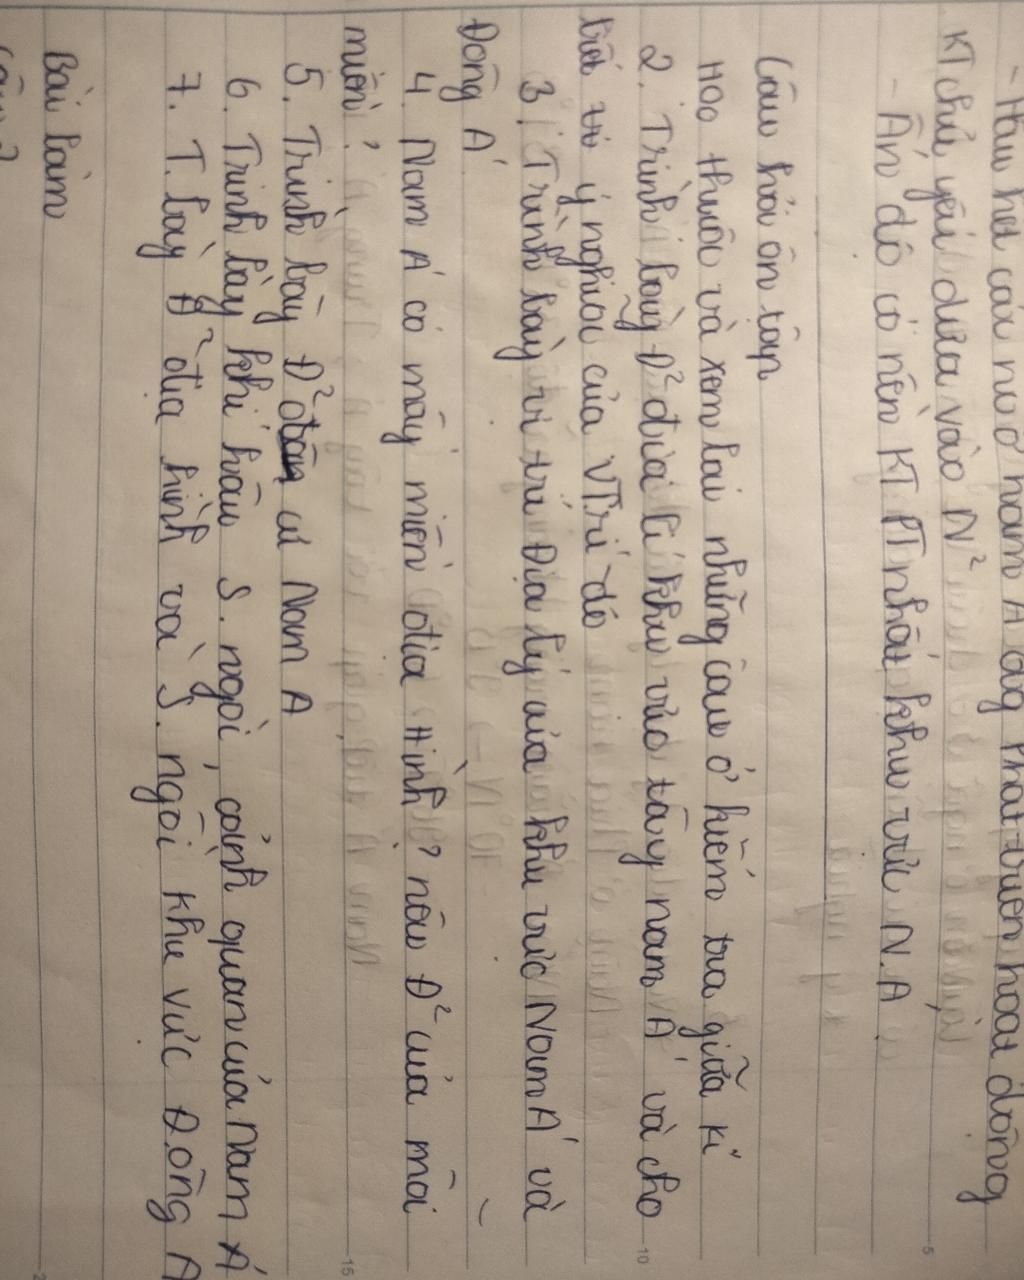 - Hầu hết các nước nam Á đag phát triển hoạt động
KT chủ yếu dựa vào N²
- Ấn độ có nền KT PT nhất khu vực N.A
Câu hỏi ôn tập
Học thuộc và xem lại những câu ở kiểm tra giữa kì
2. Trình bày Đ² địa lí khu vực tây nam Á và cho
biết ý nghĩa của VTrí đó
3. Trình bày vị trí Địa lý của khu vực Nam Á và
Đông Á
4. Nam Á có mấy miền địa Hình? nêu Đ² của mỗi
miền?
5. Trình bày Đ² dân cư Nam A
6. Trình bày khí hậu S. ngòi, cảnh quan của Nam Á
7. T. bày Đ² địa hình và S. ngòi khu vực Đ.ông A
Bài làm